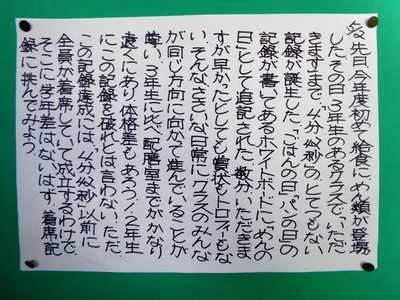 先日、今年度初めて給食にめん類が登場
した。その日、3年生のあるクラスで、「いただ
きますまで、4分22秒」のとてつもない
記録が誕生した。「ごはんの日」「パンの日」の
記録が書いてあるホワイトボードに、「めんの
日」として追記された。数分いただきま
すが早かったとしても賞状もトロフィーもな
い。そんなささいな日常に「クラスのみんな
が同じ方向に向かって進んでいる」ことが
尊い。3年生に比べ配膳室までがかなり
遠くにあり、体格差もあろう1/2年生
にこの記録を破れとは言わない。ただ、
この記録達成には、4分22秒以前に
全員が着席していて成立するわけで、
そこに学年差はないはず。着席記
録に挑んでみよう。